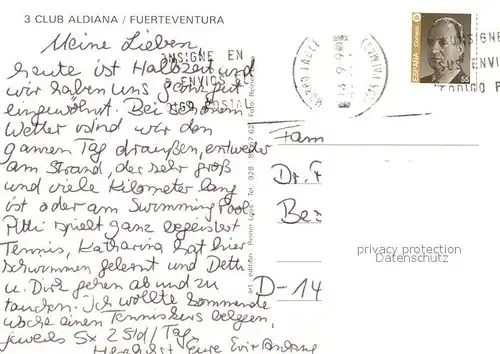 3 CLUB ALDIANA / FUERTEVENTURA
Meine Lieben
heute ist Halbzeit und
wir haben uns ganz gut
eingewöhnt. Bei schönem
Wetter sind wir den
ganzen Tag draußen, entweder
am Strand, der sehr groß
und viele Kilometer lang
ist oder am Swimming Pool.
spielt ganz begeistert
Tennis, Katharina hat hier
schwimmen gelernt und
u. Dirk gehen ab und zu
tauchen. Ich wollte kommende
Woche einen Tenniskurs belegen,
jeweils 5x 2 Std/Tag.
Herzlichst Eure
CONSIGNE EN
ENVIOS
POSTAL
ESPAÑA
Correos
Fam
Dr. F
Be
D-14
art - edition Reiner Loos Tel.: 928
Foto:
privacy protection
Datenschutz